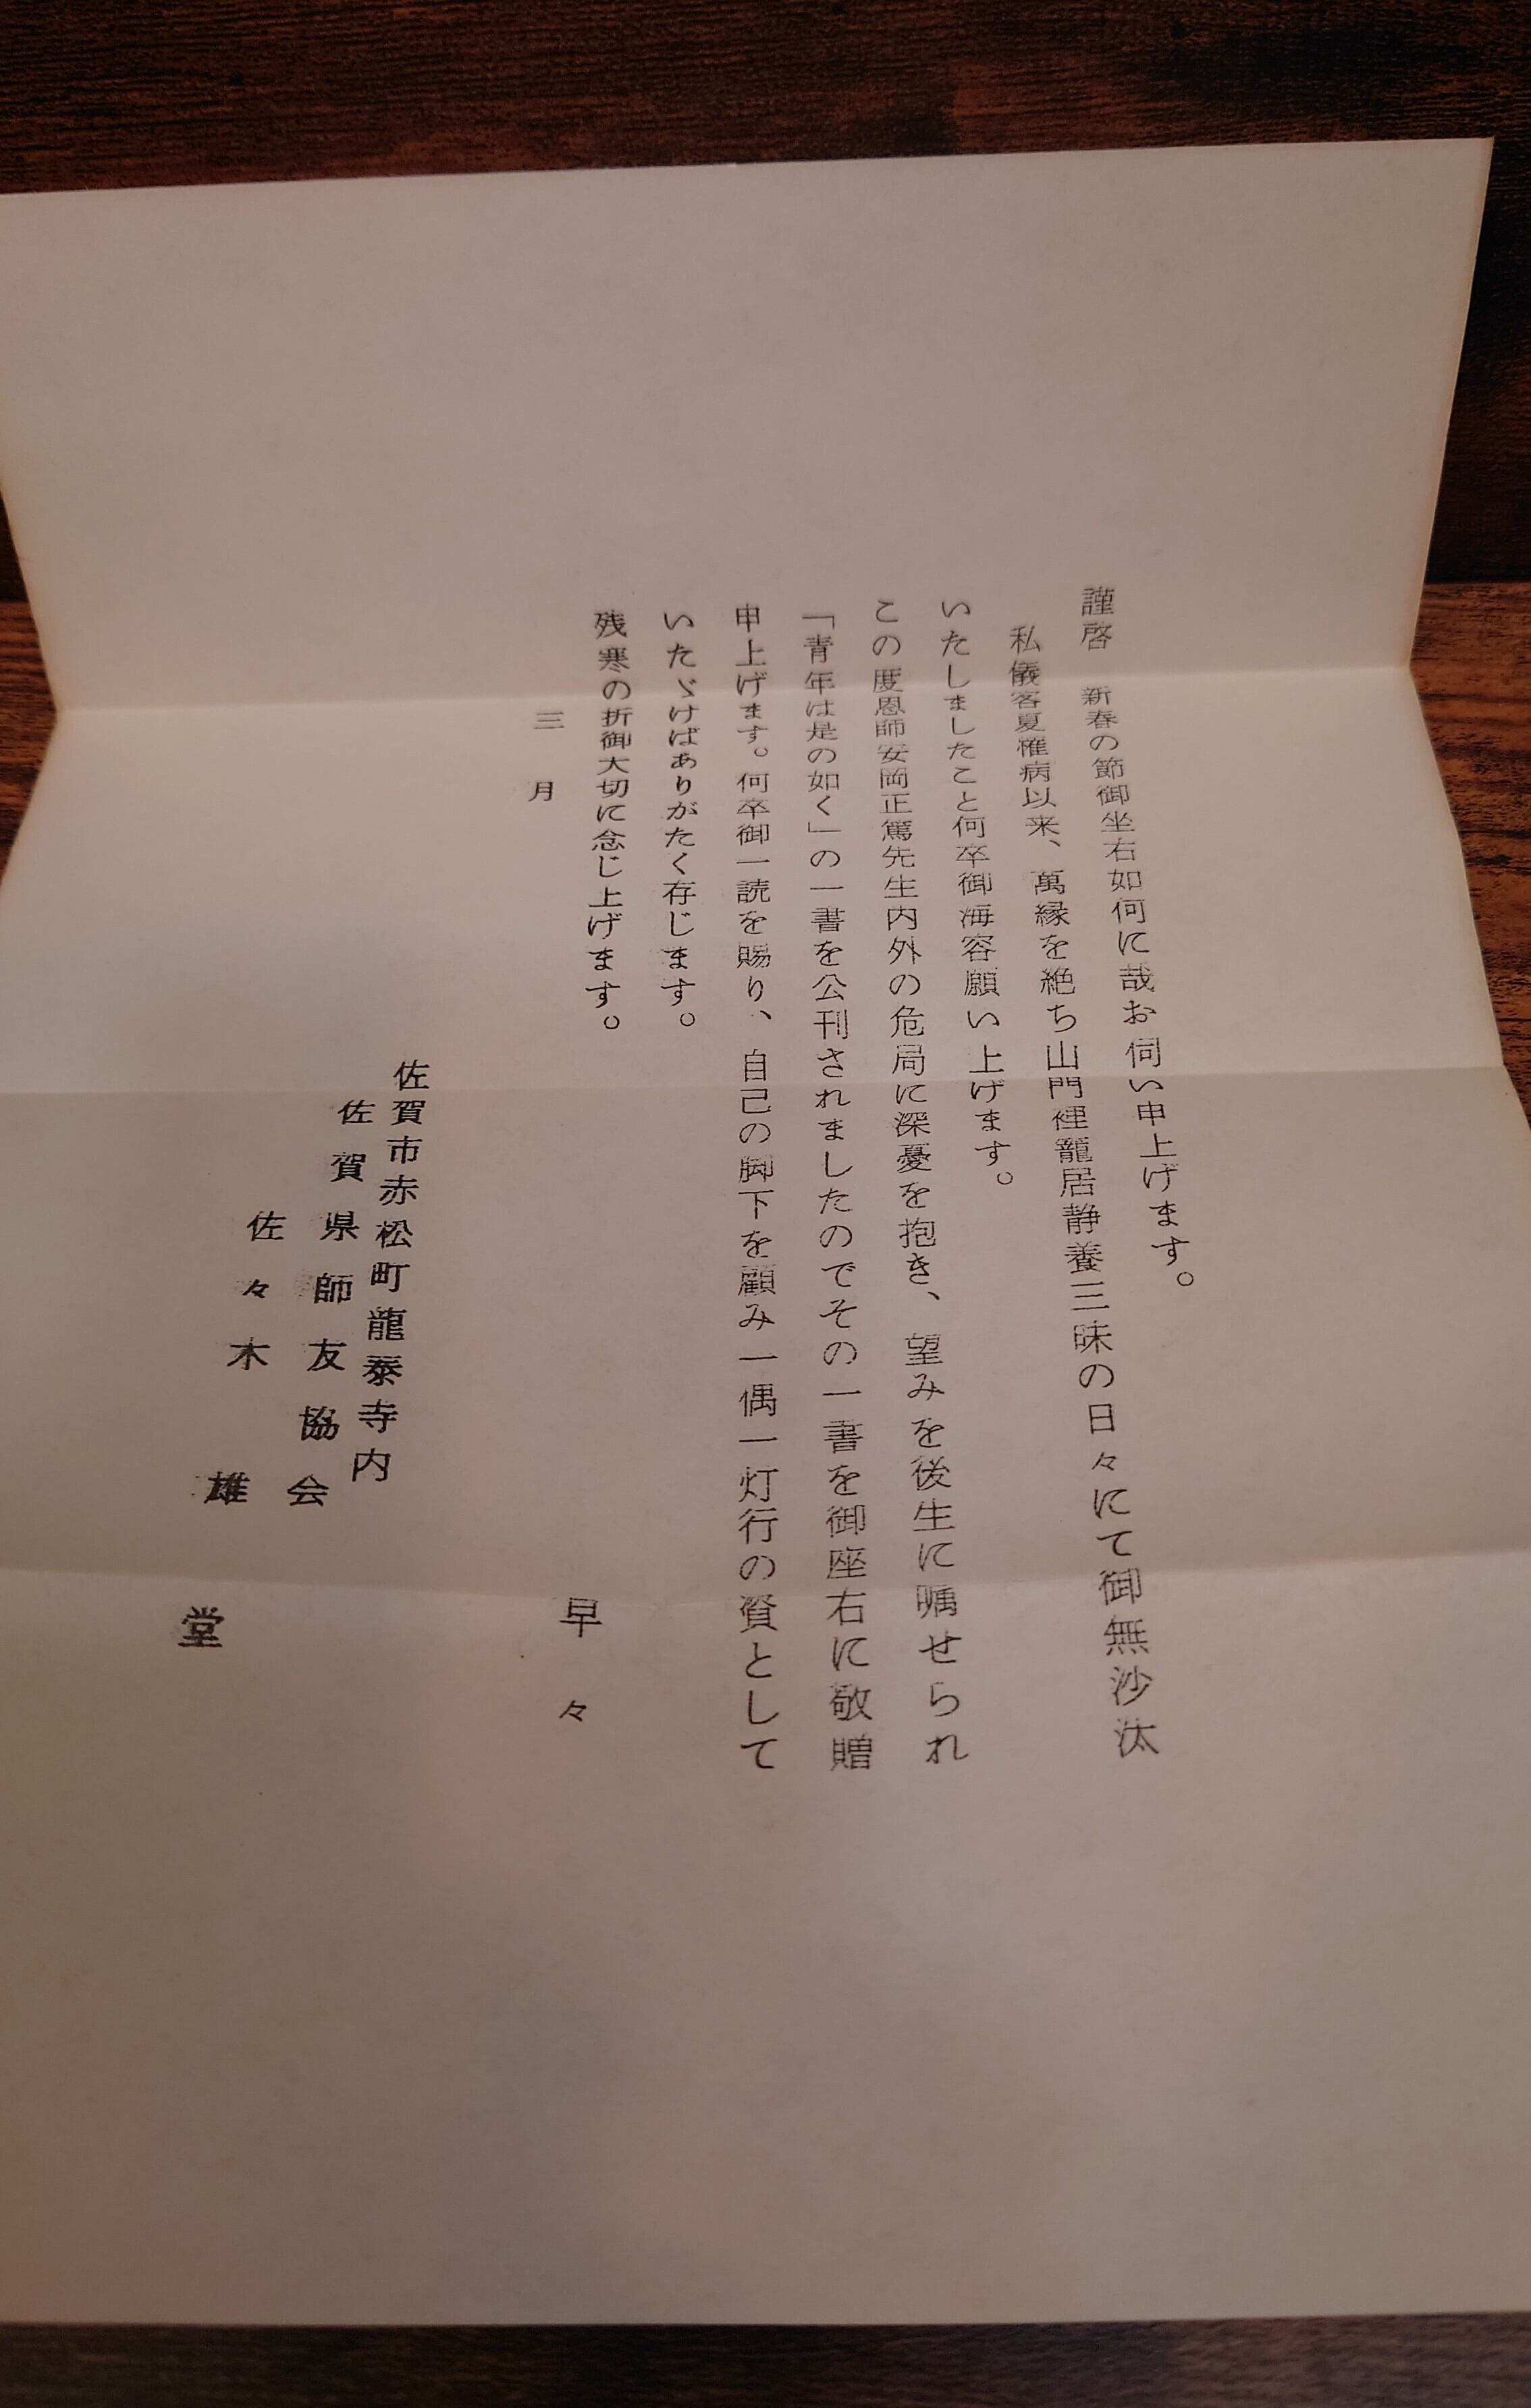 謹啓　新春の節御坐右如何に哉お伺い申上げます。
私儀客夏罹病以来、萬縁を絶ち山門裡籠居静養三昧の日々にて御無沙汰
いたしましたこと何卒御海容願い上げます。
この度恩師安岡正篤先生内外の危局に深憂を抱き、望みを後生に嘱せられ
「青年は是の如く」の一書を公刊されましたのでその一書を御座右に敬贈
申上げます。何卒御一読を賜り、自己の脚下を顧み一偶一灯行の資として
いたゞけばありがたく存じます。
残寒の折御大切に念じ上げます。
早々
三月
佐賀市赤松町龍泰寺内
佐賀県師友協会
佐々木雄堂